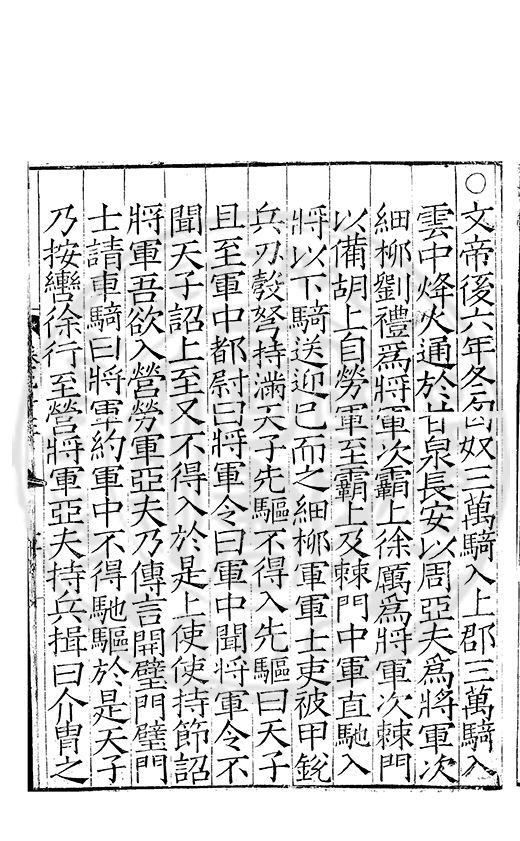 ○文帝後六年冬匈奴三萬騎入上郡三萬騎入
雲中烽火通於甘泉長安以周亞夫為將軍次
細柳劉禮為將軍次霸上徐厲為將軍次棘門
以備胡上自勞軍至霸上及棘門中軍直馳入
將以下騎送迎已而之細柳軍軍士吏被甲銳
兵刃彀弩持滿天子先驅不得入先驅曰天子
且至軍中都尉曰將軍令曰軍中聞將軍令不
聞天子詔上至又不得入於是上使使持節詔
將軍吾欲入營勞軍亞夫乃傳言開壁門壁門
士請車騎曰將軍約軍中不得馳驅於是天子
乃按轡徐行至營將軍亞夫持兵揖曰介胄之